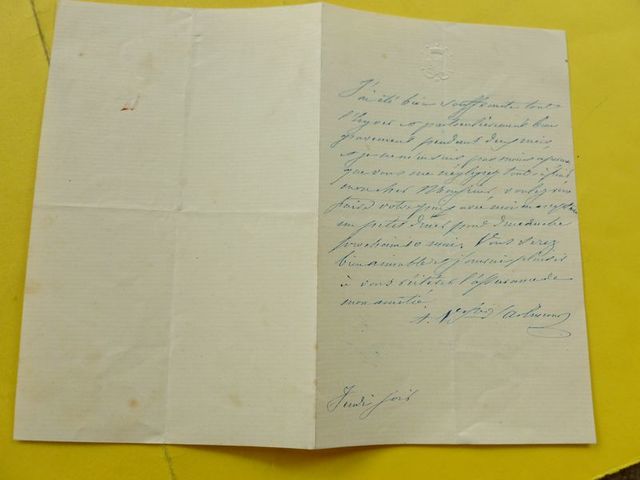 J'ai été bien souffrante tout
l'hyver et particulièrement bien
gravement pendant deux mois
et je ne m'en suis pas moins aperçue
que vous me négligez tout à fait
mon cher Monsieur, voulez vous
faire votre paix avec moi en acceptant
un petit dîner pour dimanche
prochain 10 mai. Vous serez
bien aimable et j'aurai plaisir
à vous réitérer l'assurance de
mon amitié.
Jeudi soir